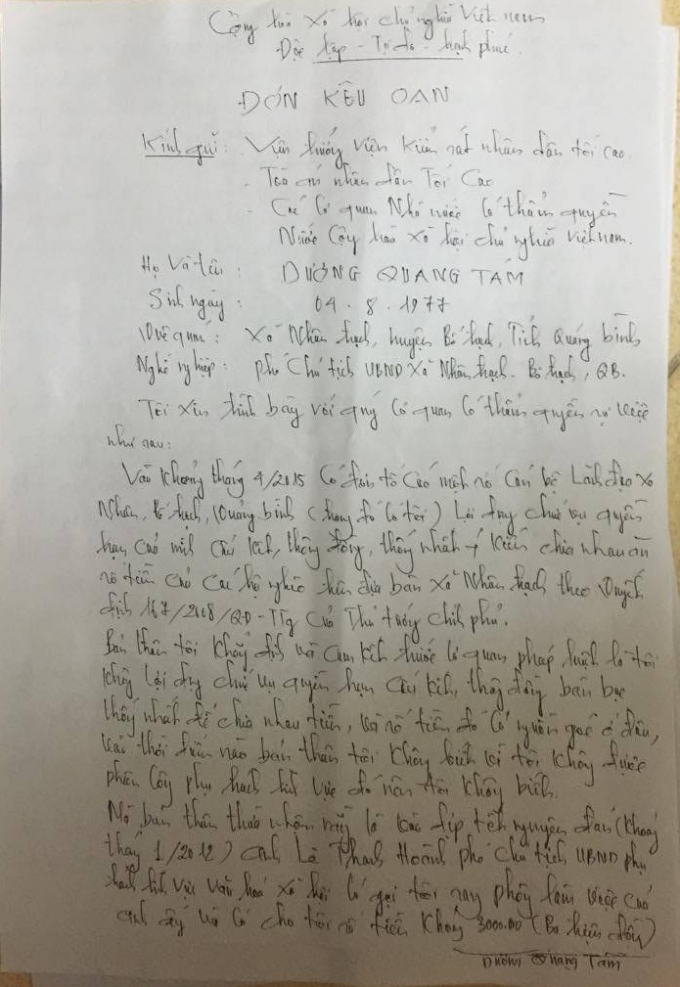 Cộng hoà Xã hội chủ nghĩa Việt nam
Độc lập - Tự do - hạnh phúc
ĐƠN KÊU OAN
Kính gửi: Viện trưởng Viện Kiểm sát nhân dân tối cao.
- Toà án nhân dân Tối Cao
- Các Cơ quan Nhà nước Có thẩm quyền
Nước Cộng hoà xã hội chủ nghĩa Việt nam.
Họ và tên: DƯƠNG QUANG TÁM
Sinh ngày: 04.8.1977
Quê quán: Xã Nhân trạch, huyện Bố trạch, Tỉnh Quảng bình
Nghề nghiệp: phó Chủ tịch UBND Xã Nhân trạch - Bố trạch, QB.
Tôi xin trình bày với quý Cơ quan Có thẩm quyền sự việc
như sau:
Vào khoảng tháng 4/2015 Có đơn tố Cáo một số Cán bộ Lãnh đạo xã
Nhân, Bố trạch, Quảng bình (trong đó Có tôi) Lợi dụng chức vụ quyền
hạn của mình Cấu kết, thông đồng, thống nhất ý kiến chia nhau
số tiền của Các hộ nghèo trên địa bàn Xã Nhân trạch theo Quyết
định 167/2008/QĐ-TTg của Thủ tướng chính phủ.
Bản thân tôi Khẳng định và Cam kết trước Cơ quan pháp luật là tôi
không Lợi dụng chức vụ quyền hạn Cấu kết, thông đồng bàn bạc
thống nhất để chia nhau tiền, và số tiền đó Có nguồn gốc ở đâu,
vào thời điểm nào bản thân tôi Không biết vì tôi Không được
phân Công phụ trách lĩnh vực đó nên tôi Không biết.
bản thân thừa nhận rằng là vào dịp tết nguyên đán (Khoảng
tháng 1/2012) anh Lê Thanh Hoành phó Chủ tịch UBND phụ
trách lĩnh vực Văn hoá Xã hội Có gọi tôi sang phòng làm việc của
anh ấy và Có cho tôi số tiền Khoảng 3000.00 (Ba triệu đồng)
Dương Quang Tám